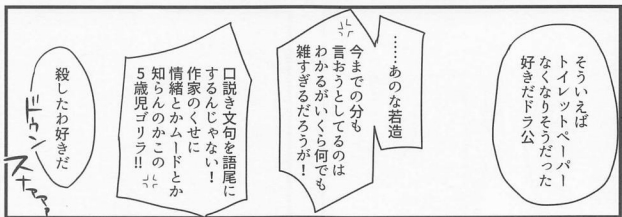 そういえば
トイレットペーパー
なくなりそうだった
好きだドラ公
……あのな若造
今までの分も
言おうとしてるのは
わかるがいくら何でも
雑すぎるだろうが！
口説き文句を語尾に
するんじゃない！
作家のくせに
情緒とかムードとか
知らんのかこの
5歳児ゴリラ!!
殺したわ好きだ
ドゥン
スナァァァ